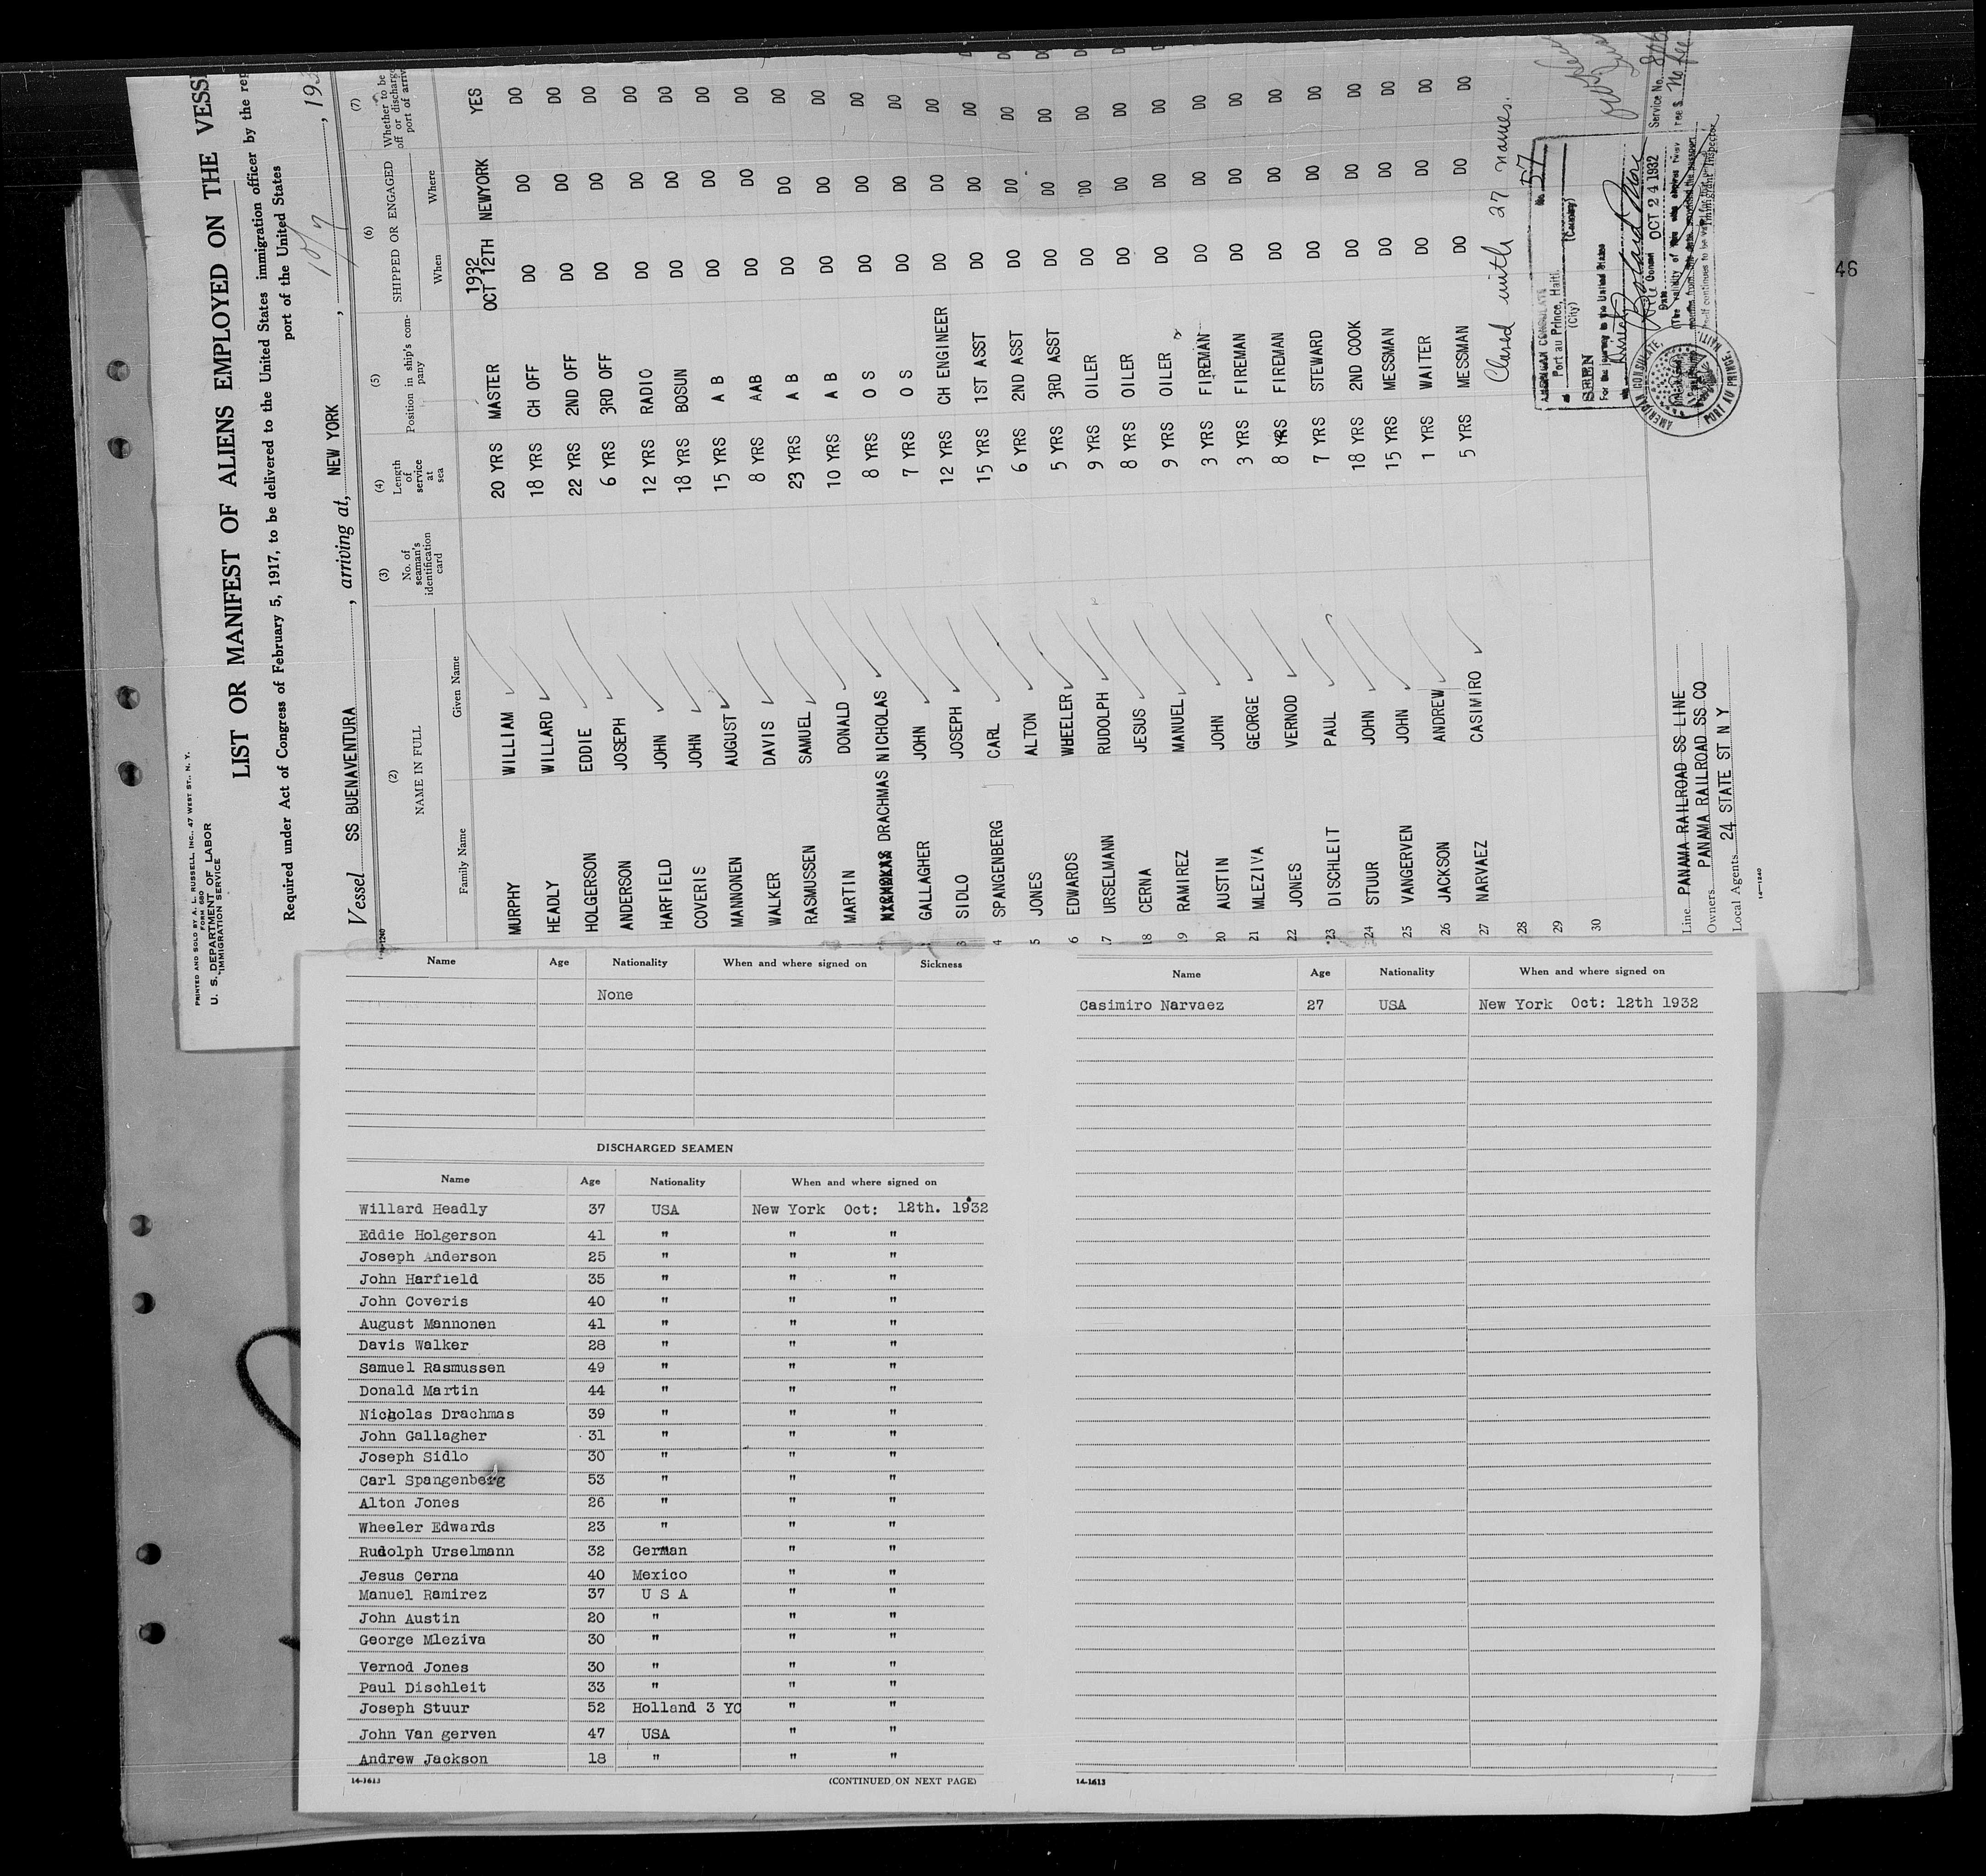 PRINTED AND SOLD BY A. L. RUSSELL, INC., 47 WEST ST., N. Y.
FORM 680
U. S. DEPARTMENT OF LABOR
IMMIGRATION SERVICE
LIST OR MANIFEST OF ALIENS EMPLOYED ON THE VESS
Required under Act of Congress of February 5, 1917, to be delivered to the United States immigration officer by the rep
port of the United States
Vessel SS BUENAVENTURA, arriving at, NEW YORK, 193
(2) (3) (4) (5) (6) (7)
NAME IN FULL No. of seaman's identification card Length of service at sea Position in ship's company SHIPPED OR ENGAGED Whether to be off or discharge port of arriv
Family Name Given Name When Where
1932
MURPHY WILLIAM 20 YRS MASTER OCT 12TH NEWYORK YES
HEADLY WILLARD 18 YRS CH OFF DO DO DO
HOLGERSON EDDIE 22 YRS 2ND OFF DO DO DO
ANDERSON JOSEPH 6 YRS 3RD OFF DO DO DO
HARFIELD JOHN 12 YRS RADIO DO DO DO
COVERIS JOHN 18 YRS BOSUN DO DO DO
MANNONEN AUGUST 15 YRS A B DO DO DO
WALKER DAVIS 8 YRS AAB DO DO DO
RASMUSSEN SAMUEL 23 YRS A B DO DO DO
MARTIN DONALD 10 YRS A B DO DO DO
DRACHMAS NICHOLAS 8 YRS O S DO DO DO
GALLAGHER JOHN 7 YRS O S DO DO DO
3 SIDLO JOSEPH 12 YRS CH ENGINEER DO DO DO
4 SPANGENBERG CARL 15 YRS 1ST ASST DO DO DO
5 JONES ALTON 6 YRS 2ND ASST DO DO DO
6 EDWARDS WHEELER 5 YRS 3RD ASST DO DO DO
7 URSELMANN RUDOLPH 9 YRS OILER DO DO DO
18 CERNA JESUS 8 YRS OILER DO DO DO
19 RAMIREZ MANUEL 9 YRS OILER DO DO DO
20 AUSTIN JOHN 3 YRS FIREMAN DO DO DO
21 MLEZIVA GEORGE 3 YRS FIREMAN DO DO DO
22 JONES VERNOD 8 YRS FIREMAN DO DO DO
23 DISCHLEIT PAUL 7 YRS STEWARD DO DO DO
24 STUUR JOHN 18 YRS 2ND COOK DO DO DO
25 VANGERVEN JOHN 15 YRS MESSMAN DO DO DO
26 JACKSON ANDREW 1 YRS WAITER DO DO DO
27 NARVAEZ CASIMIRO 5 YRS MESSMAN DO DO DO
28
29
30
Closed with 27 names.
AMERICAN CONSULATE No. 57
Port au Prince, Haiti.
(City) (Country)
SEEN
For the journey to the United States
Date OCT 24 1932
Service No.
Fee $ No fee
Immigrant Inspector
AMERICAN CONSULATE, PORT AU PRINCE, HAITI
Line PANAMA RAILROAD SS LINE
Owners PANAMA RAILROAD SS CO
Local Agents 24 STATE ST N Y
14—1240
46
Name Age Nationality When and where signed on Sickness
None
DISCHARGED SEAMEN
Name Age Nationality When and where signed on
Willard Headly 37 USA New York Oct: 12th. 1932
Eddie Holgerson 41 " " "
Joseph Anderson 25 " " "
John Harfield 35 " " "
John Coveris 40 " " "
August Mannonen 41 " " "
Davis Walker 28 " " "
Samuel Rasmussen 49 " " "
Donald Martin 44 " " "
Nicholas Drachmas 39 " " "
John Gallagher 31 " " "
Joseph Sidlo 30 " " "
Carl Spangenberg 53 " " "
Alton Jones 26 " " "
Wheeler Edwards 23 " " "
Rudolph Urselmann 32 German " "
Jesus Cerna 40 Mexico " "
Manuel Ramirez 37 U S A " "
John Austin 20 " " "
George Mleziva 30 " " "
Vernod Jones 30 " " "
Paul Dischleit 33 " " "
Joseph Stuur 52 Holland 3 YO " "
John Van gerven 47 USA " "
Andrew Jackson 18 " " "
14-1613 (CONTINUED ON NEXT PAGE)
Name Age Nationality When and where signed on
Casimiro Narvaez 27 USA New York Oct: 12th 1932
14-1613